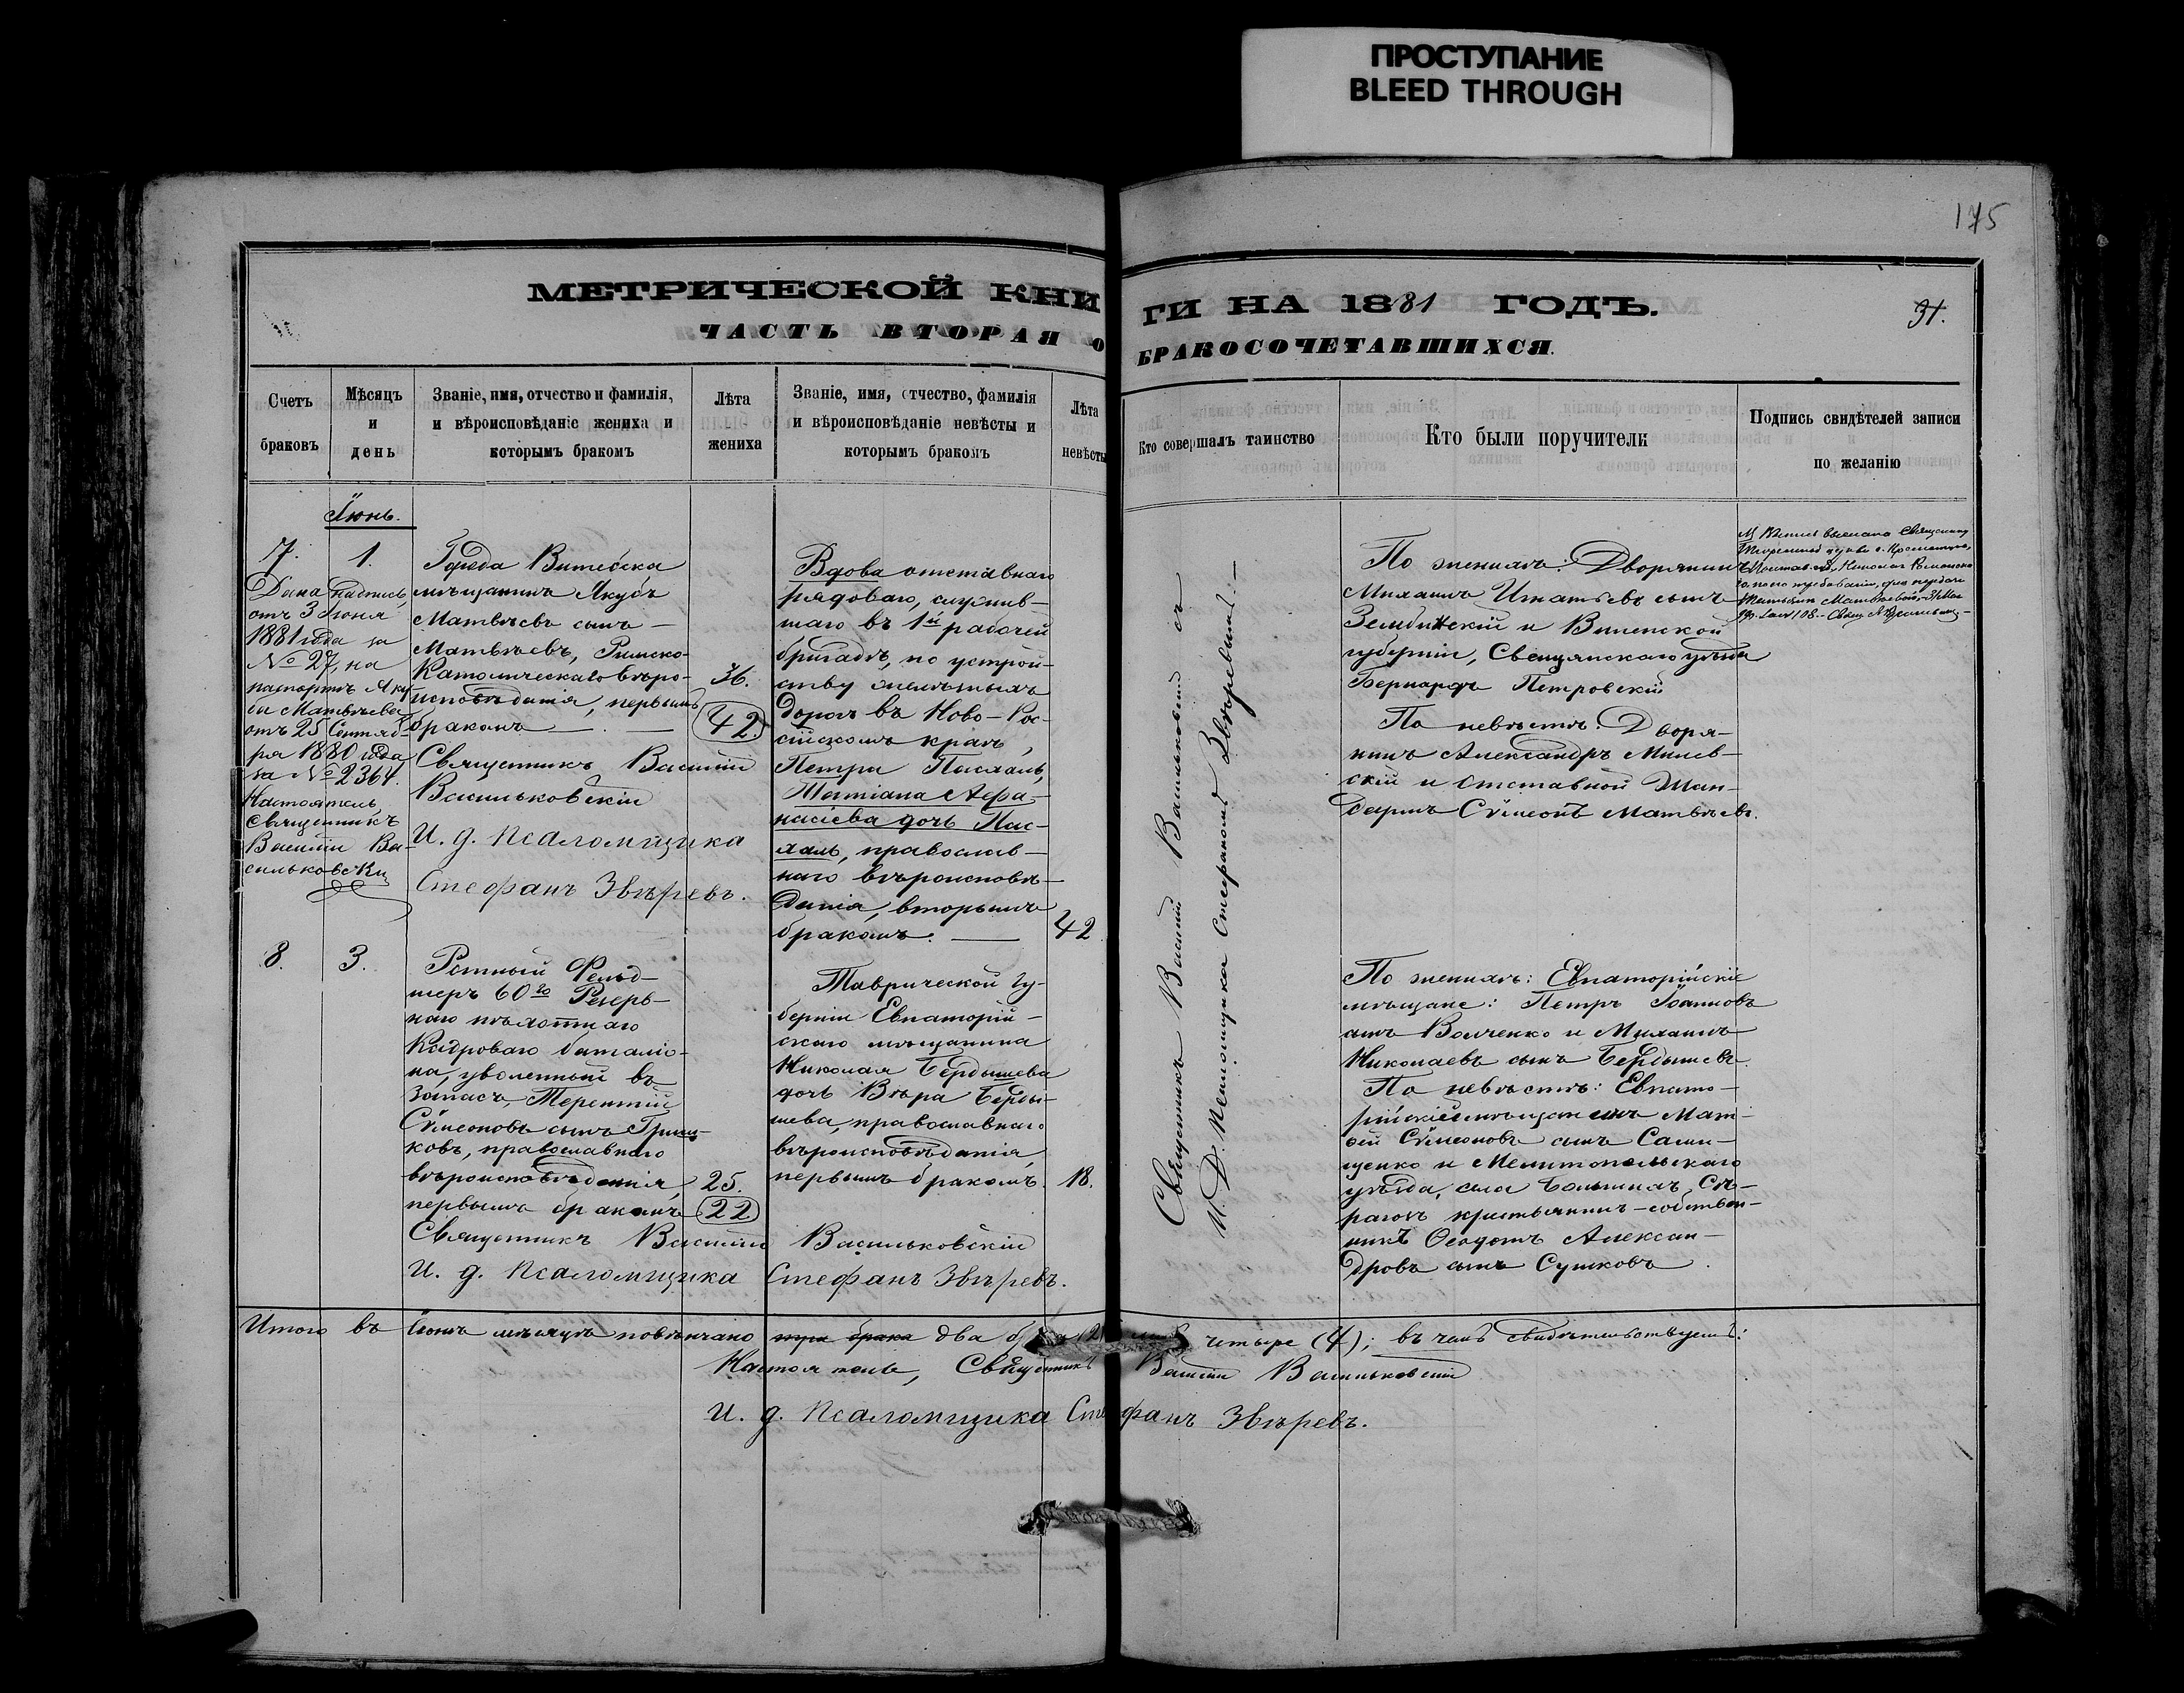 ПРОСТУПАНИЕ
BLEED THROUGH
175
МЕТРИЧЕСКОЙ КНИ
ГИ НА 1881 ГОДЪ.
31.
ЧАСТЬ ВТОРАЯ О
БРАКОСОЧЕТАВШИХСЯ.
Счетъ
браковъ
Мѣсяцъ
и
день
Званіе, имя, отчество и фамилія,
и вѣроисповѣданіе жениха и
которымъ бракомъ
Лѣта
жениха
Званіе, имя, отчество, фамилія
и вѣроисповѣданіе невѣсты и
которымъ бракомъ
Лѣта
невѣсты
Кто совершалъ таинство
Кто были поручители
Подпись свидѣтелей записи
по желанію
Іюнь.
7.
1.
Дана надпись,
отъ 3 Іюня
1881 года за
№ 27, на
паспортѣ Яку
ба Матвѣева
отъ 25 Сентяб-
ря 1880 года
за № 2364.
Настоятель,
Священникъ
Василій Ва-
сильковскій
Города Витебска
мѣщанинъ Якубъ
Матвѣевъ сынъ —
Матвѣевъ, Римско-
Католическаго вѣро-
исповѣданія, первымъ
бракомъ —
Священникъ Василій
Васильковскій
И. д. Псаломщика
Стефанъ Звѣревъ.
36.
42.
Вдова отставнаго
рядоваго, служив-
шаго въ 1й рабочей
бригадѣ, по устрой-
ству желѣзныхъ
дорогъ въ Ново-Рос-
сійскомъ краѣ,
Петра Пасхаль,
Татіана Афа-
насіева дочь Пас-
халь, православ-
наго вѣроисповѣ-
данія, вторымъ
бракомъ. —
42
Священникъ Василій Васильковскій съ
И. Д. Псаломщика Стефаномъ Звѣревымъ. —
По женихѣ: Дворянинъ
Михаилъ Игнатьевъ сынъ
Зембинскій и Виленской
губерніи, Свенцянскаго уѣзда
Бернардъ Петровскій
По невѣстѣ: Дворя-
нинъ Александръ Милев-
скій и отставной Жан-
дармъ Сѵмеонъ Матвѣевъ.
8.
3.
Ротный Фельд-
шеръ 60го Резерв-
наго пѣхотнаго
Кадроваго баталіо-
на, уволенный въ
запасъ, Терентій
Сѵмеоновъ сынъ
ковъ, православнаго
вѣроисповѣданія,
первымъ бракомъ
Священникъ Василій Васильковскій
И. д. Псаломщика Стефанъ Звѣревъ.
25.
22
Таврической гу-
берніи Евпаторій-
скаго мѣщанина
Николая Бердышева
дочь Вѣра Берды-
шева, православнаго
вѣроисповѣданія,
первымъ бракомъ.
18.
По женихѣ: Евпаторійскіе
мѣщане: Петръ Іоанновъ
сынъ Волченко и Михаилъ
Николаевъ сынъ Бердышевъ.
По невѣстѣ: Евпато-
рійскій мѣщанинъ Мат-
фей Сѵмеоновъ сынъ
щенко и Мелитопольскаго
уѣзда, села Большихъ Сѣ-
рагозъ крестьянинъ-собствен-
никъ Ѳеодотъ Алексан-
дровъ сынъ Сушковъ.
Итого въ Іюнѣ мѣсяцѣ повѣнчано три брака два четыре (4); въ чемъ свидѣтельствуемъ:
Настоятель, Священникъ Василій Васильковскій
И. д. Псаломщика Стефанъ Звѣревъ.